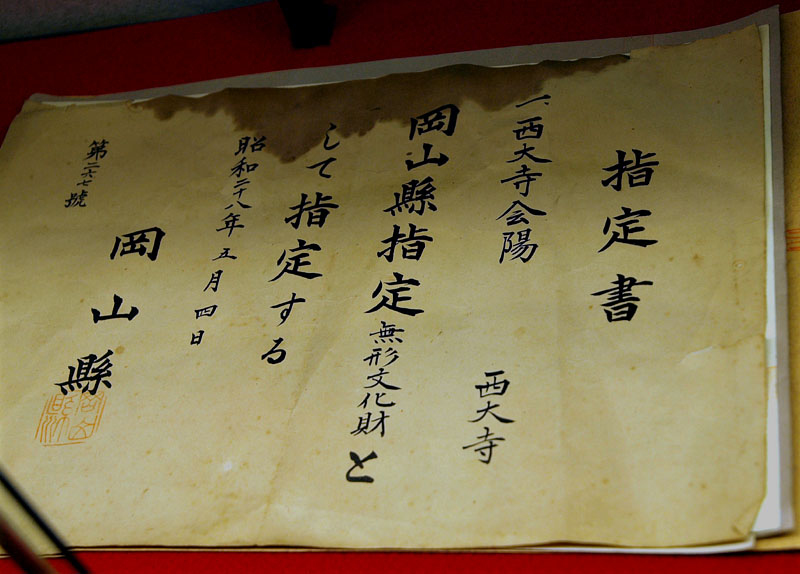 指定書
一、西大寺会陽
西大寺
岡山縣指定無形文化財と
して指定する
昭和二十八年五月四日
岡山縣
第二六七號